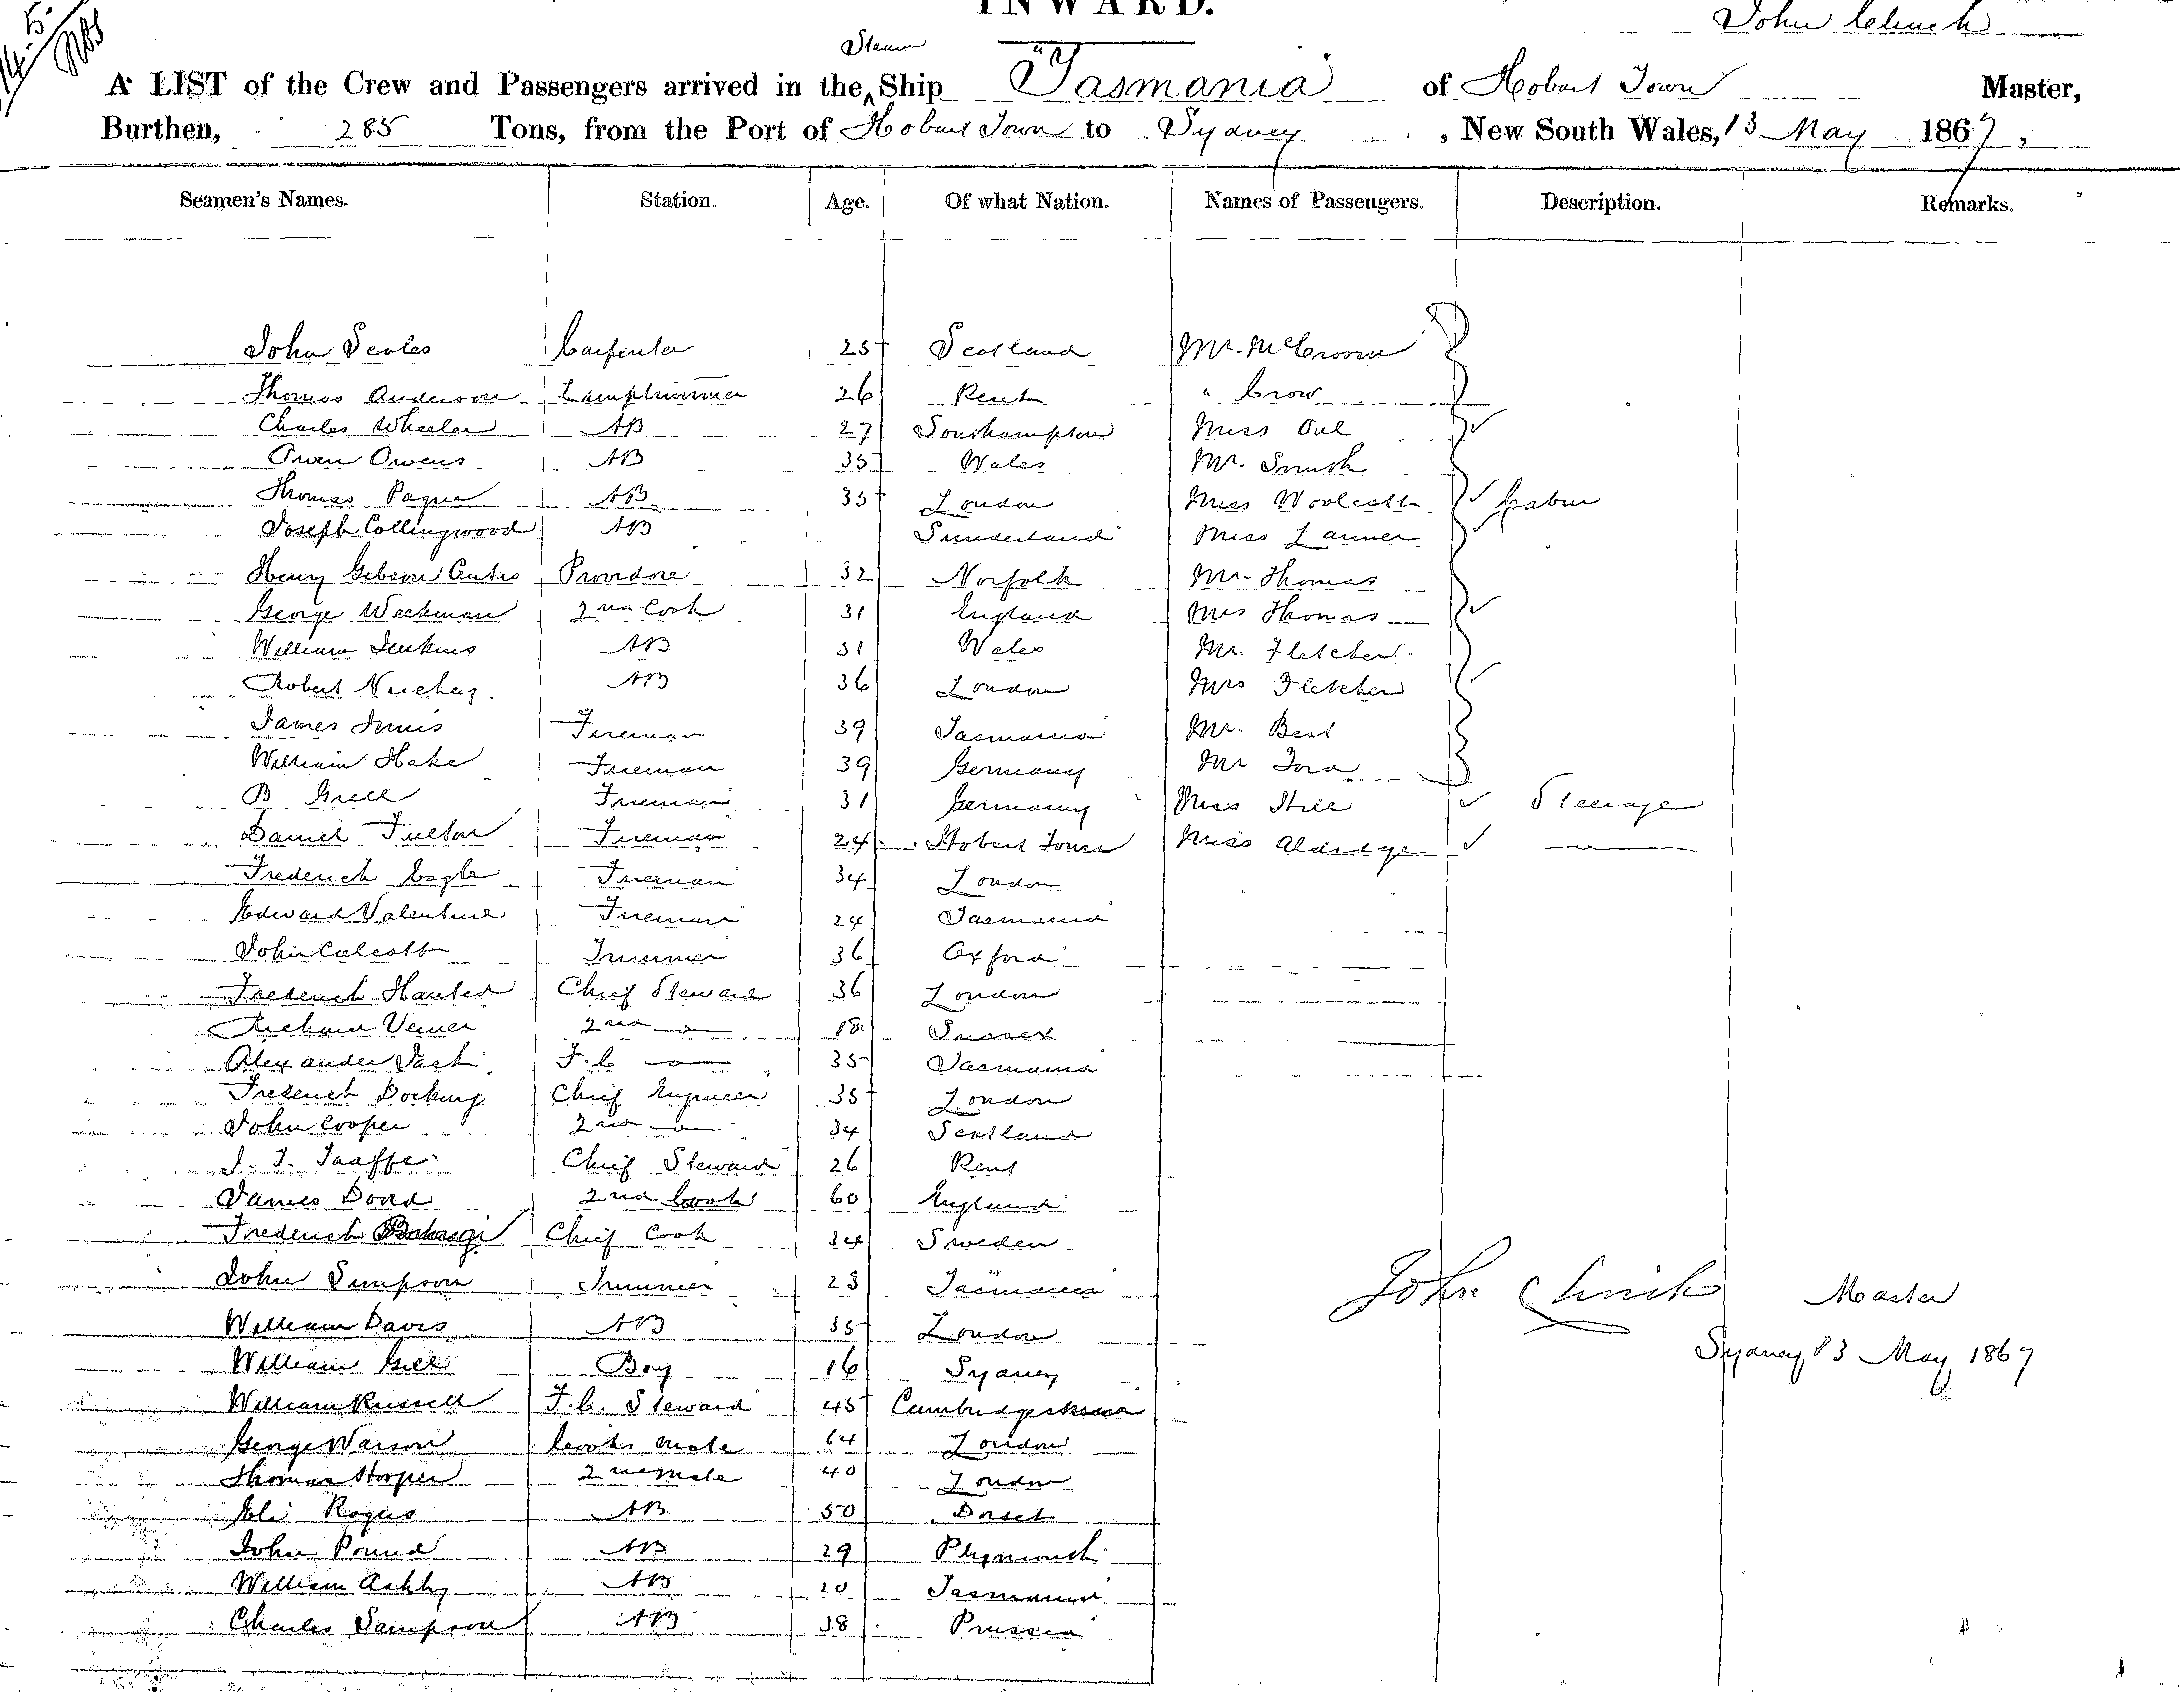 INWARD.
John Clinch
Steam
A LIST of the Crew and Passengers arrived in the Ship "Tasmania" of Hobart Town Master,
Burthen, 285 Tons, from the Port of Hobart Town to Sydney, New South Wales, 13 May 1867,
Seamen's Names. Station. Age. Of what Nation. Names of Passengers. Description. Remarks.
John Scoles Carpenter 25 Scotland Mr.
Thomas Anderson Lamptrimmer 26 Kent " Crow
Charles Wheeler AB 27 Southampton Miss
Owen Owens AB 35 Wales Mr. Smith
Thomas AB 35 London Miss Woolcott Cabin
Joseph Collingwood AB Sunderland Miss
Henry Gibson Providore 32 Norfolk Mr. Thomas
George Workman 2nd Cook 31 England Mrs Thomas
William Jenkins AB 31 Wales Mr. Fletcher
Robert AB 36 London Mrs Fletcher
James Innis Fireman 39 Tasmania Mr. Best
William Hake Fireman 39 Germany Mr
B Fireman 31 Germany Miss Hill Steerage
Daniel Fireman 24 Hobart Town Miss Aldridge
Frederick Fireman 34 London
Edward Valentine Fireman 24 Tasmania
John Trimmer 36 Oxford
Frederick Chief Steward 36 London
Richard 2nd do 18 Sussex
Alexander F.C. do 35 Tasmania
Frederick Docking Chief Engineer 35 London
John Cooper 2nd do 34 Scotland
J. J. Taaffe Chief Steward 26 Kent
James Doard 2nd Cook 60 England
Frederick Chief Cook 34 Sweden
John Simpson Trimmer 23 Tasmania
John Clinch Master
William Davis AB 35 London
Sydney 13 May 1867
William Gill Boy 16 Sydney
William Russell F.C. Steward 45 Cambridgeshire
George Cooks Mate 64 London
Thomas Hooper 2nd Mate 40 London
Eli Rogers AB 50 Dorset
John Pound AB 29 Plymouth
William Ashby AB 20 Tasmania
Charles Sampson AB 38 Prussia